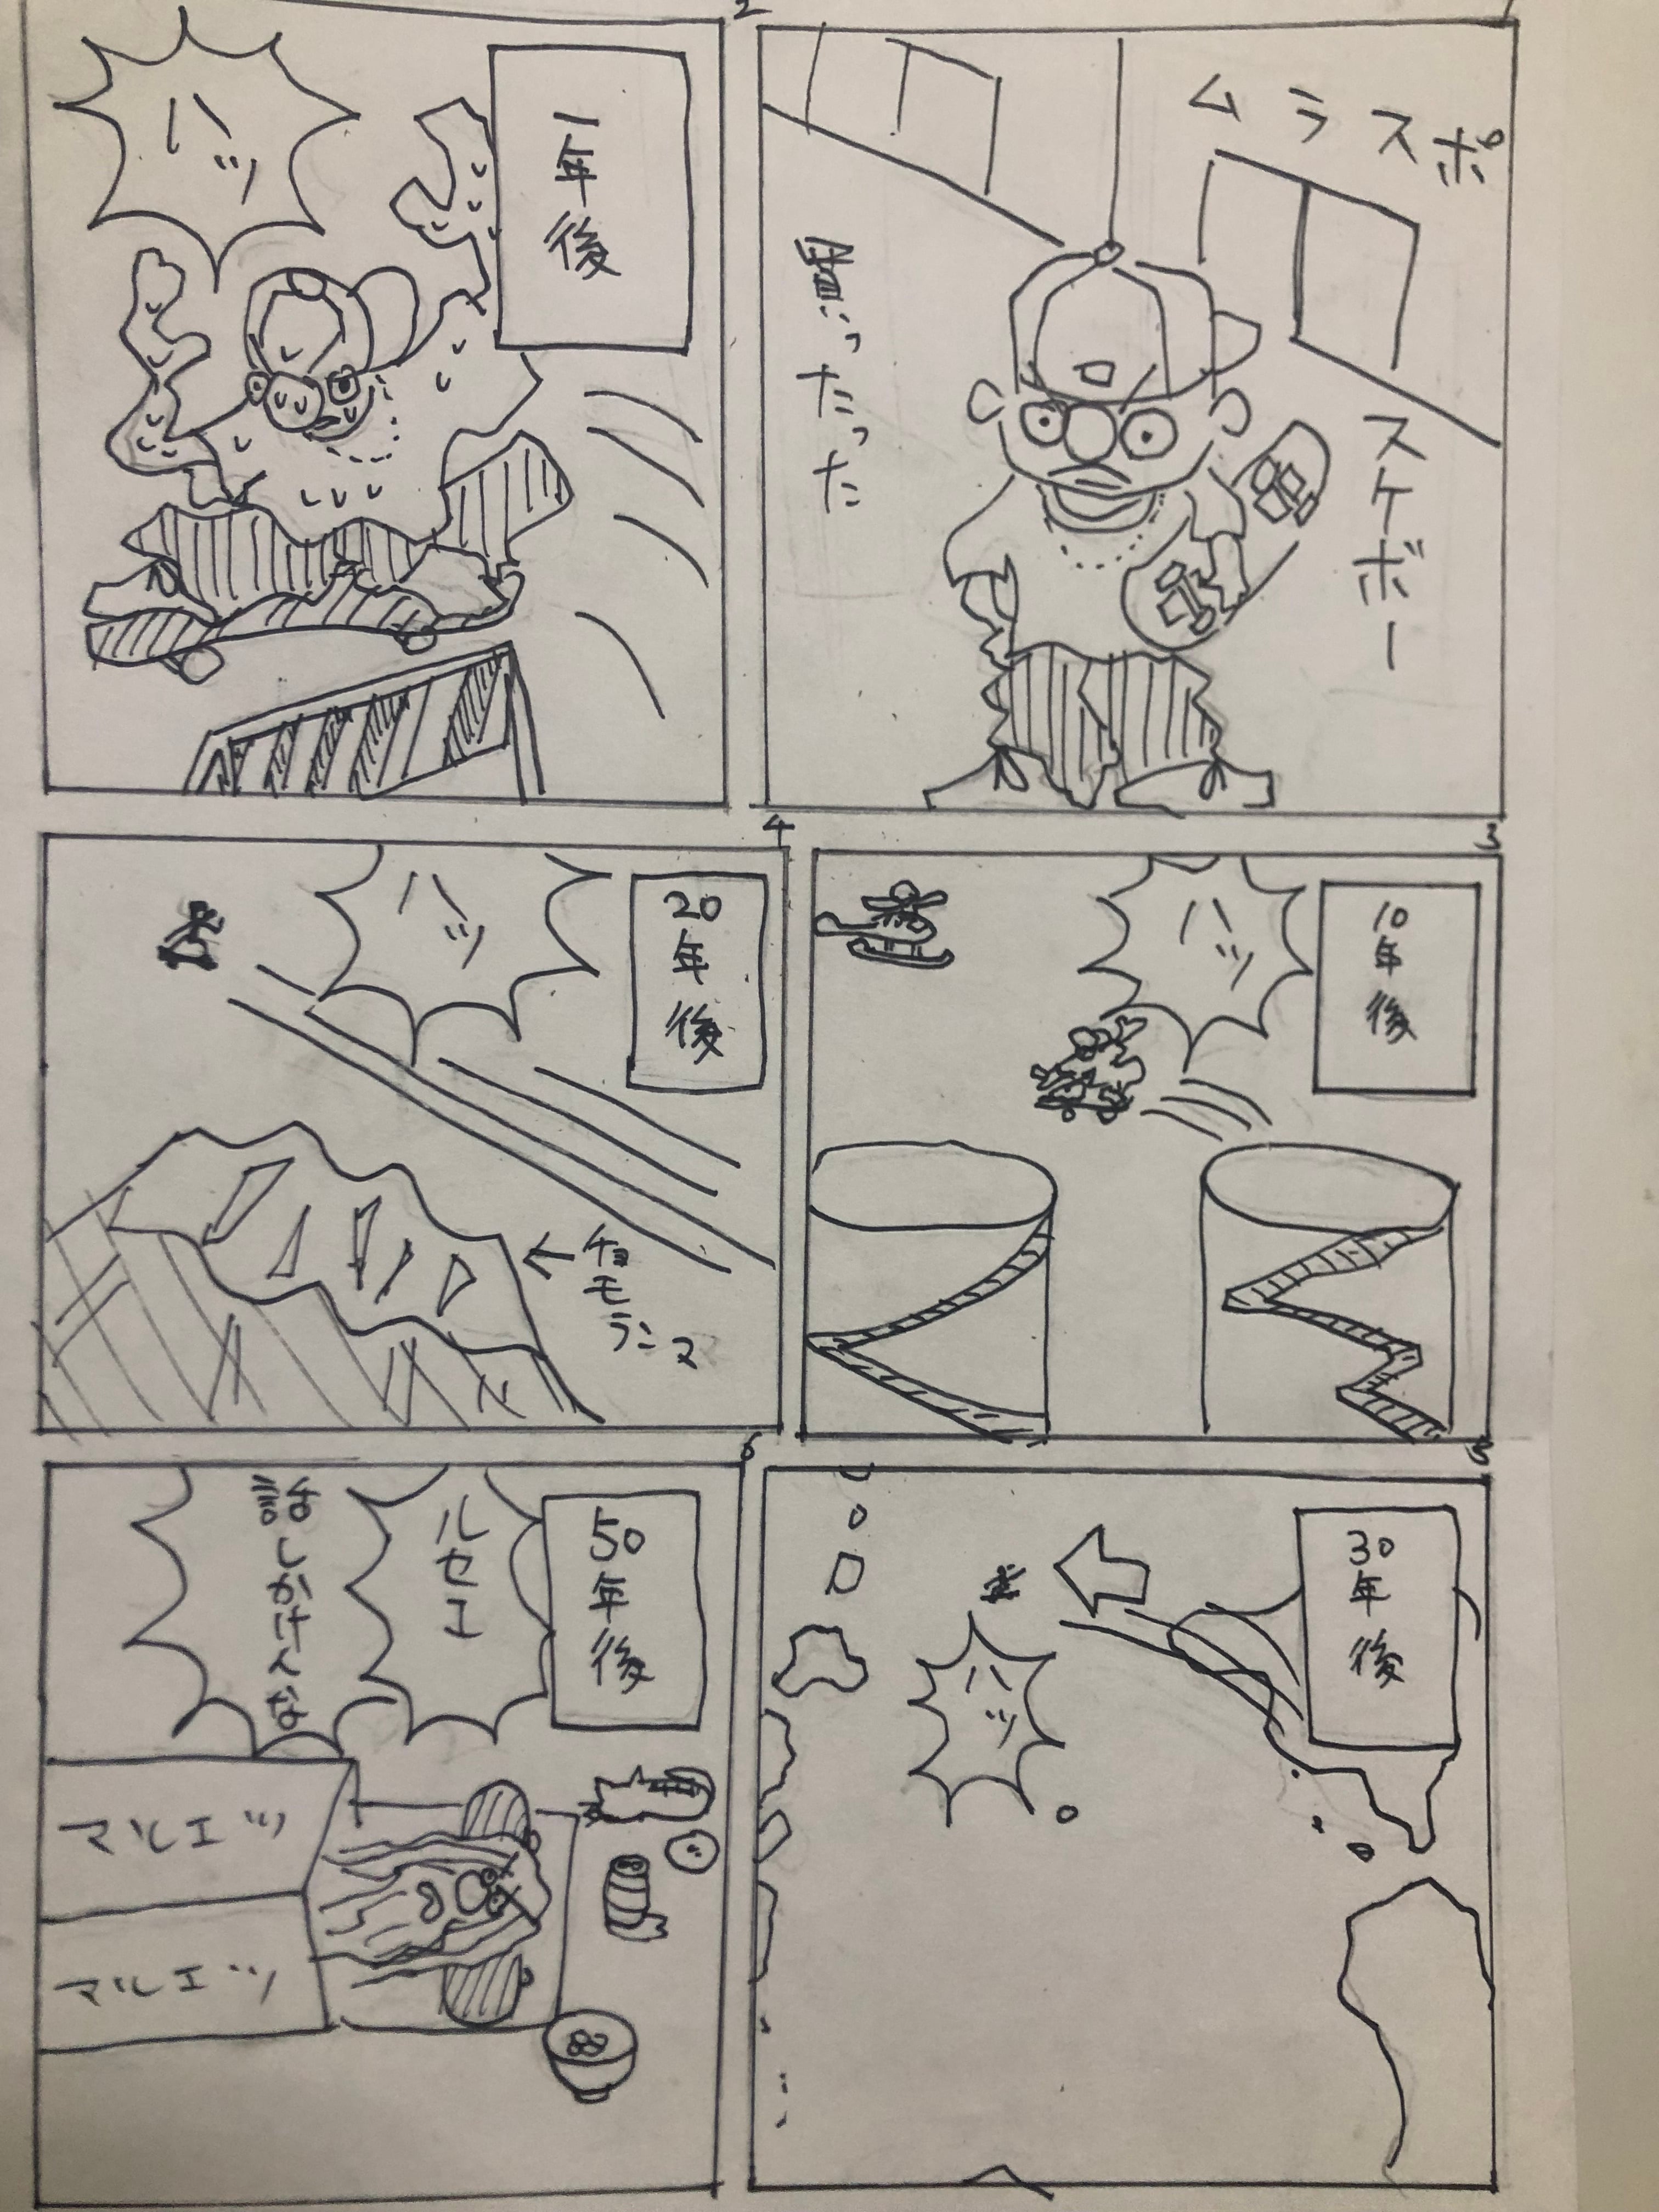 1
ムラスポ
スケボー
買ったった
2
一年後
ハッ
3
10年後
ハッ
4
20年後
ハッ
←チョモランマ
5
30年後
ハッ
6
50年後
ルセエ
話しかけんな
マルエツ
マルエツ